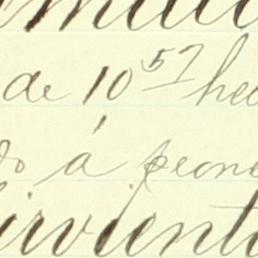 de 10 57 hec
do á peone
irvient